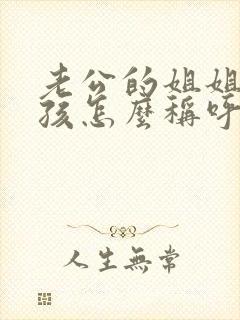 老公的姐姐
孩怎麼稱呼
人生無常